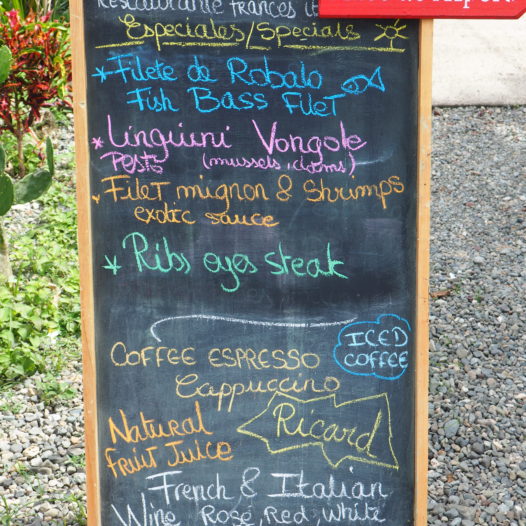 Restaurante frances
Especiales/Specials
Filete de Robalo
Fish Bass Filet
Linguini Vongole
Pesto (mussels, clams)
Filet mignon & Shrimps
exotic sauce
Ribs eyes steak
ICED
COFFEE
COFFEE ESPRESSO
Cappuccino
Ricard
Natural
Fruit Juice
French & Italian
Wine Rosé, Red, White